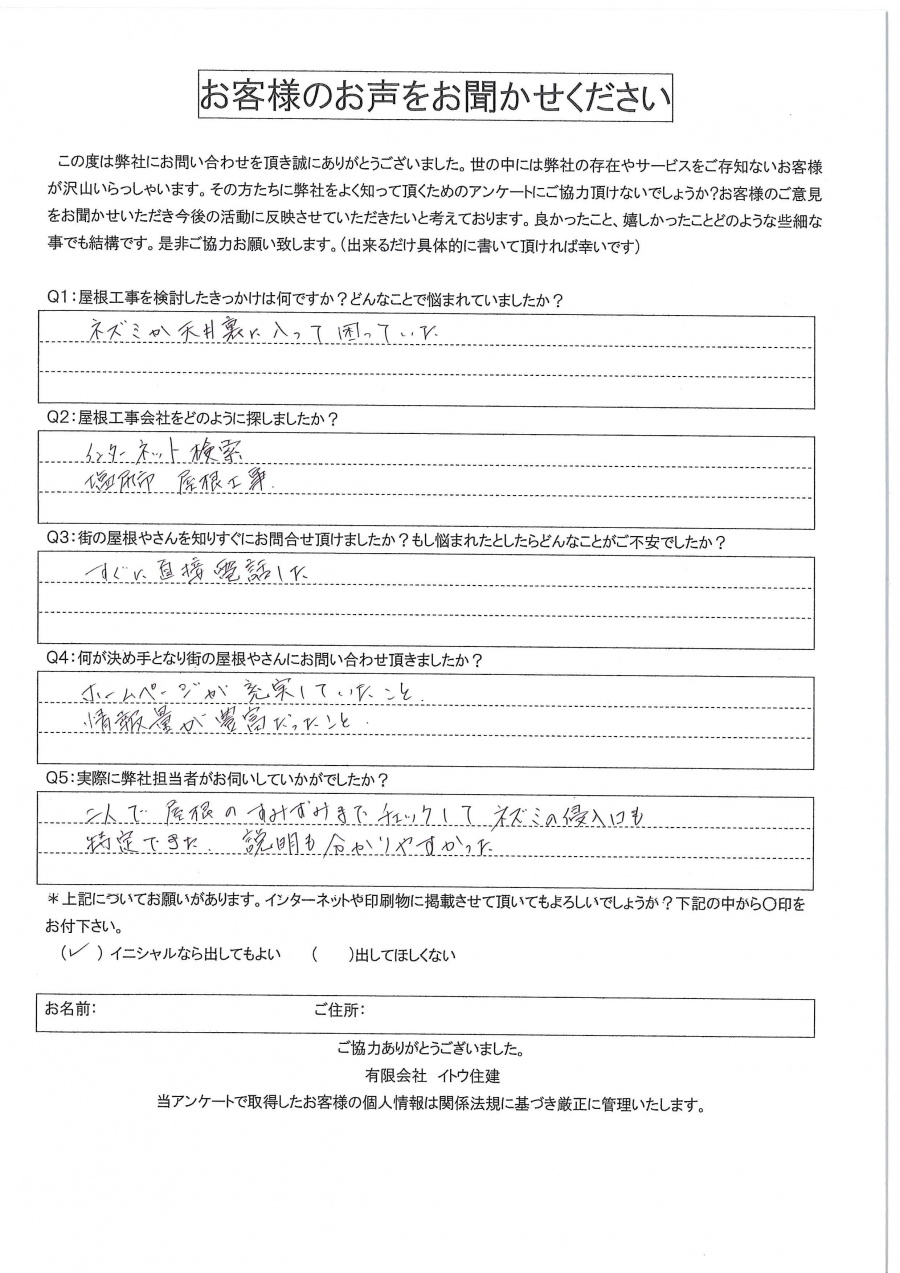 お客様のお声をお聞かせください
この度は弊社にお問い合わせを頂き誠にありがとうございました。世の中には弊社の存在やサービスをご存知ないお客様
が沢山いらっしゃいます。その方たちに弊社をよく知って頂くためのアンケートにご協力頂けないでしょうか?お客様のご意見
をお聞かせいただき今後の活動に反映させていただきたいと考えております。良かったこと、嬉しかったことどのような些細な
事でも結構です。是非ご協力お願い致します。(出来るだけ具体的に書いて頂ければ幸いです)
Q1:屋根工事を検討したきっかけは何ですか?どんなことで悩まれていましたか?
ネズミが天井裏に入って困っていた
Q2:屋根工事会社をどのように探しましたか?
インターネット検索
屋根工事.
Q3:街の屋根やさんを知りすぐにお問合せ頂けましたか?もし悩まれたとしたらどんなことがご不安でしたか?
すぐに直接電話した
Q4:何が決め手となり街の屋根やさんにお問い合わせ頂きましたか?
ホームページが充実していたこと.
情報量が豊富だったこと.
Q5:実際に弊社担当者がお伺いしていかがでしたか?
二人で屋根のすみずみまでチェックしてネズミの侵入口も
特定できた. 説明も分かりやすかった
*上記についてお願いがあります。インターネットや印刷物に掲載させて頂いてもよろしいでしょうか?下記の中から〇印を
お付下さい。
(✓)イニシャルなら出してもよい ( )出してほしくない
お名前: ご住所:
ご協力ありがとうございました。
有限会社 イトウ住建
当アンケートで取得したお客様の個人情報は関係法規に基づき厳正に管理いたします。